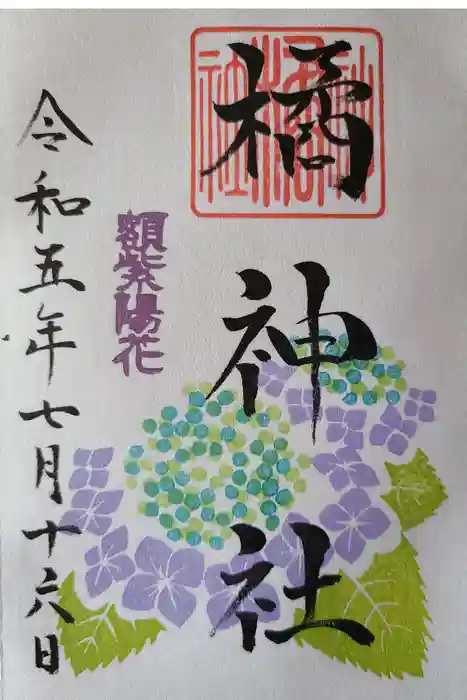 橘神社
額紫陽花
令和五年七月十六日